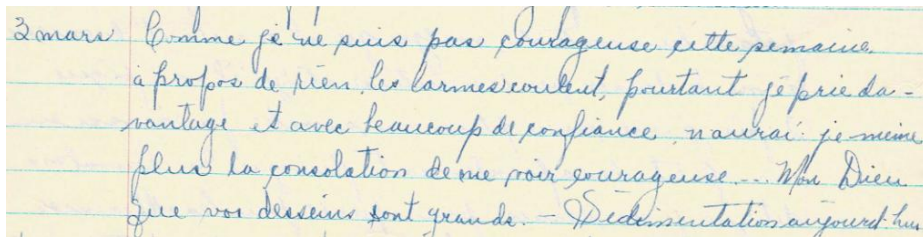 3 mars Comme je ne suis pas courageuse cette semaine.
à propos de rien, les larmes coulent, pourtant je prie da-
vantage et avec beaucoup de confiance, n'aurai-je même
plus la consolation de me voir courageuse... Mon Dieu
que vos desseins sont grands. - Sédimentation aujourd'hui